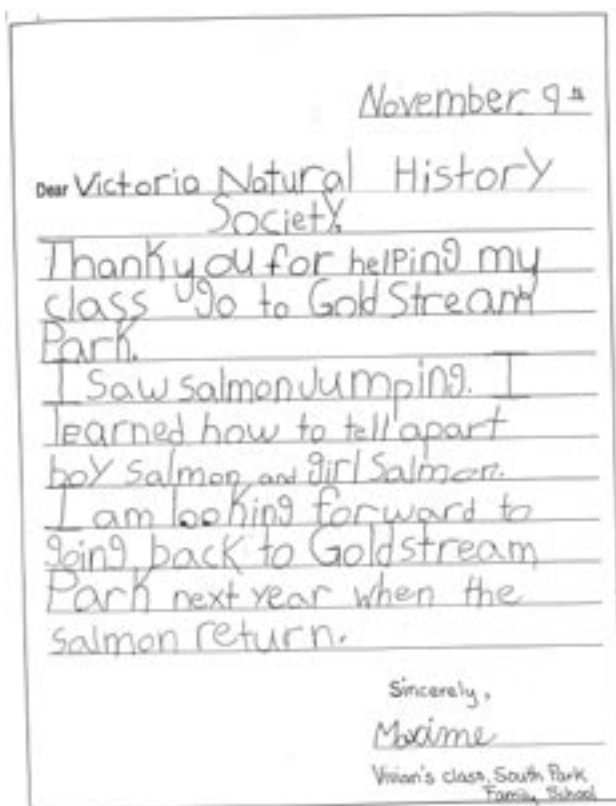 November 9th
Dear Victoria Natural History
Society,
Thank you for helping my
class go to Gold Stream
Park.
I Saw salmon Jumping. I
learned how to tell apart
boy salmon and girl salmon.
I am looking forward to
going back to Goldstream
Park next year when the
salmon return.
Sincerely,
Maxime
Vivian's class, South Park
Family School